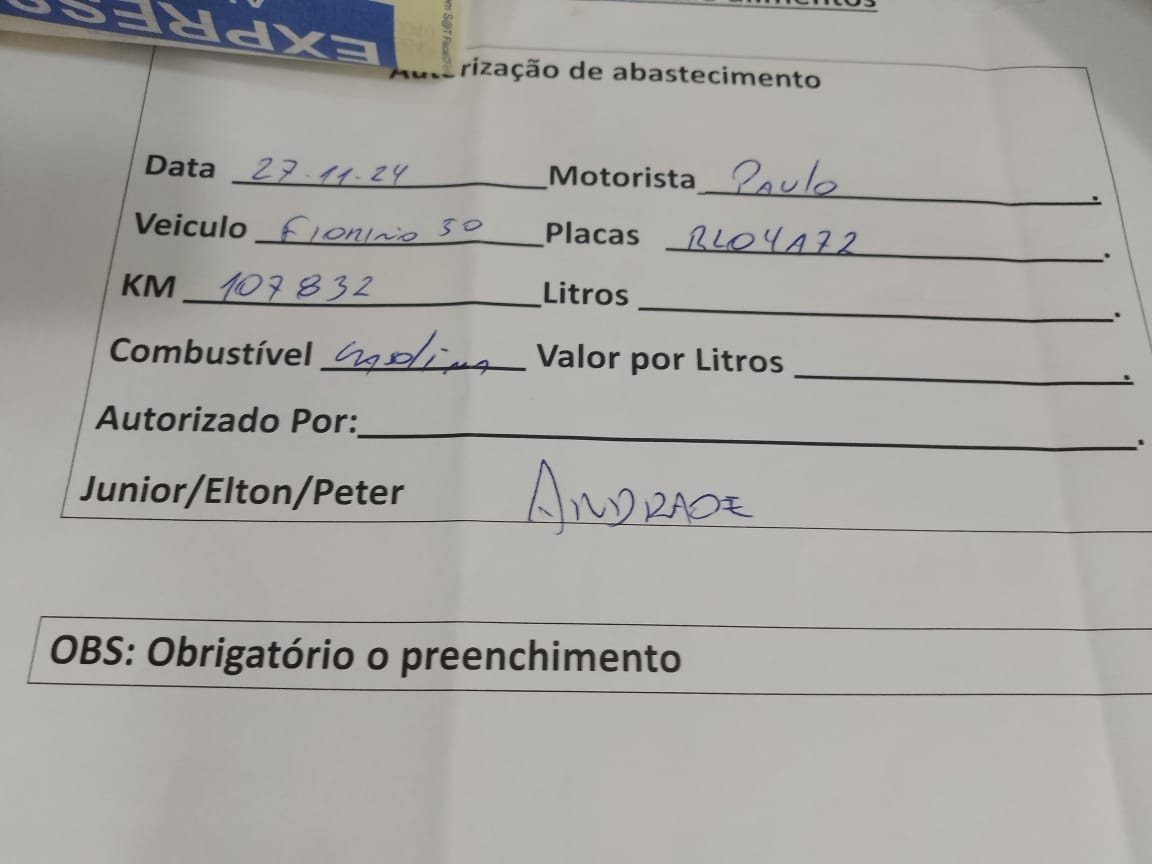 EXPRESS
Autorização de abastecimento
Data 27.11.24 Motorista Paulo.
Veiculo Fiorino 30 Placas RLO4A72.
KM 107832 Litros.
Combustível Gasolina Valor por Litros.
Autorizado Por:.
Junior/Elton/Peter ANDRADE
OBS: Obrigatório o preenchimento